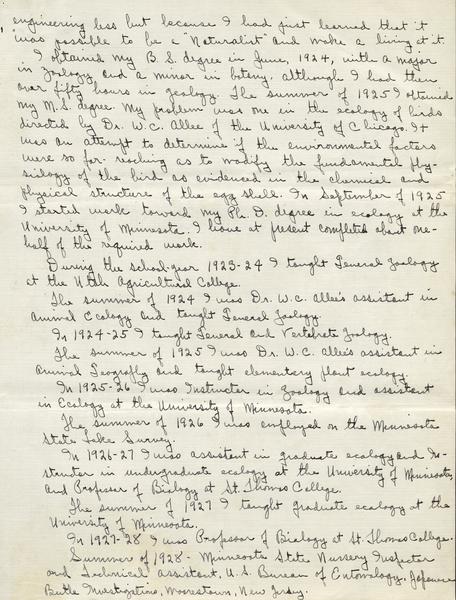 engineering less but because I had just learned that it
was possible to be a "Naturalist" and make a living at it.
I obtained my B.S. degree in June, 1924, with a major
in Zoology and a minor in botany, although I had then
over fifty hours in geology. The summer of 1925 I obtained
my M.S. degree. My problem was one in the ecology of birds
directed by Dr. W.C. Allee of the University of Chicago. It
was an attempt to determine if the environmental factors
were so far-reaching as to modify the fundamental phy-
siology of the bird as evidenced in the chemical and
physical structure of the egg shell. In September of 1925
I started work toward my Ph.D. degree in ecology at the
University of Minnesota. I have at present completed about one-
half of the required work.
During the school-year 1923-24 I taught General Zoology
at the Utah Agricultural College.
The summer of 1924 I was Dr. W.C. Allee's assistant in
Animal Ecology and taught General Zoology.
In 1924-25 I taught General and Vertebrate Zoology.
The summer of 1925 I was Dr. W.C. Allee's assistant in
Animal Geography and taught elementary plant ecology.
In 1925-26 I was Instructor in Zoology and assistant
in Ecology at the University of Minnesota.
The summer of 1926 I was employed on the Minnesota
State Lake Survey.
In 1926-27 I was assistant in graduate ecology and In-
structor in undergraduate ecology at the University of Minnesota,
and Professor of Biology at St. Thomas College.
The summer of 1927 I taught graduate ecology at the
University of Minnesota.
In 1927-28 I was Professor of Biology at St. Thomas College.
Summer of 1928 - Minnesota State Nursery Inspector
and Technical Assistant, U.S. Bureau of Entomology, Japanese
Beetle Investigations, Moorestown, New Jersey.